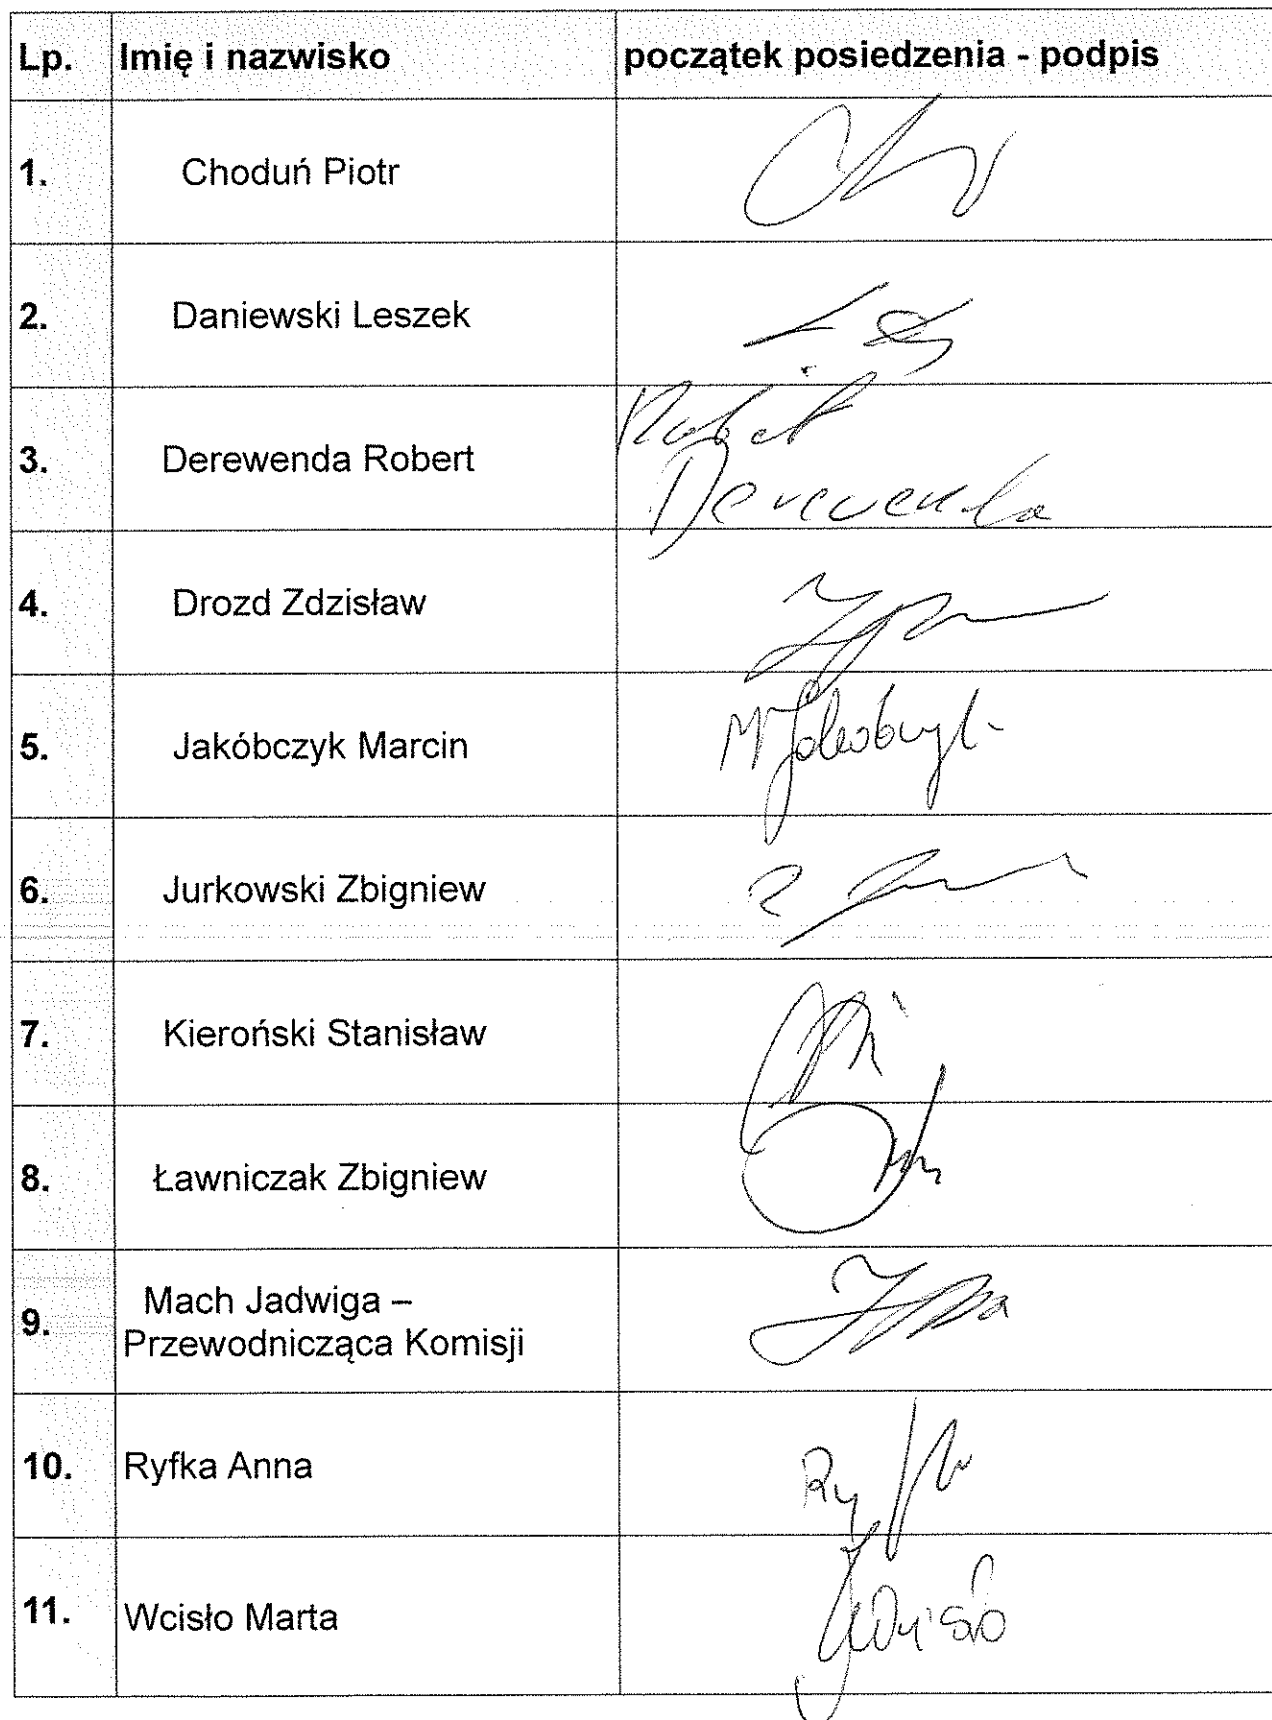 Lp. Imię i nazwisko początek posiedzenia - podpis
1. Choduń Piotr
2. Daniewski Leszek
3. Derewenda Robert Robert
Derewenda
4. Drozd Zdzisław
5. Jakóbczyk Marcin
6. Jurkowski Zbigniew
7. Kieroński Stanisław
8. Ławniczak Zbigniew
9. Mach Jadwiga –
Przewodnicząca Komisji
10. Ryfka Anna
11. Wcisło Marta